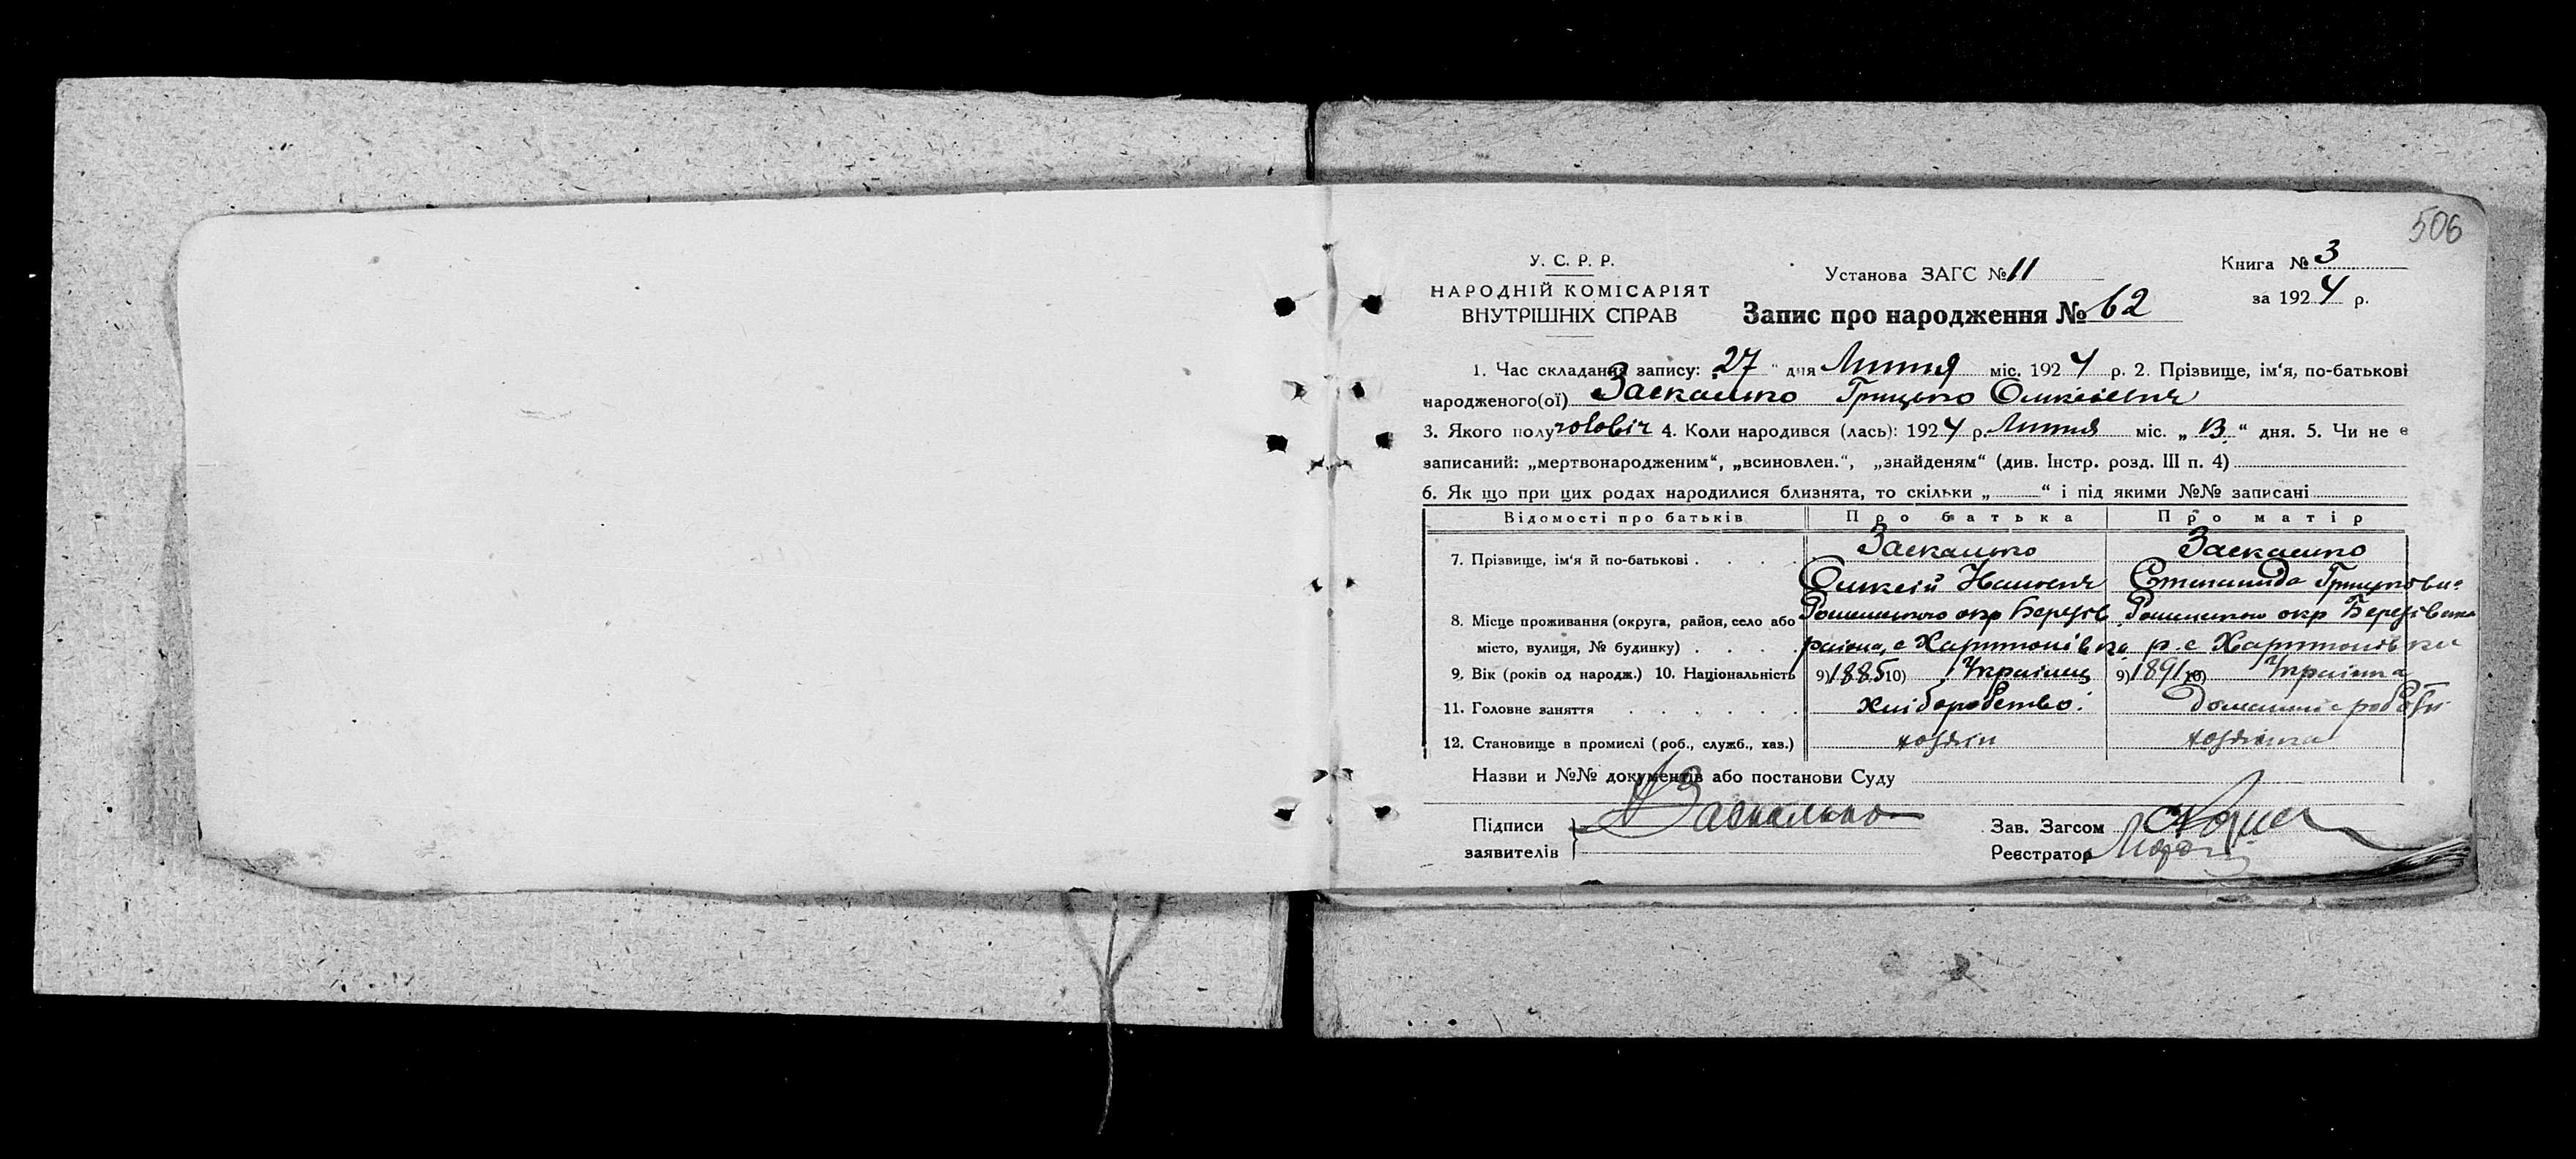 506
У. С. Р. Р.
НАРОДНІЙ КОМІСАРІЯТ
ВНУТРІШНІХ СПРАВ
Установа ЗАГС № 11
Книга № 3
за 1924 р.
Запис про народження № 62
1. Час складання запису: „27" дня Липня міс. 1924 р. 2. Прізвище, ім'я, по-батькові
народженого(ої) Заскалько Грицько Олексієвич
3. Якого полу чоловіч 4. Коли народився (лась): 1924 р. Липня міс. „13" дня. 5. Чи не є
записаний: „мертвонародженим", „всиновлен.", „знайденям" (див. Інстр. розд. III п. 4)
6. Як що при цих родах народилися близнята, то скільки „ " і під якими №№ записані
Відомості про батьків Про батька Про матір
7. Прізвище, ім'я й по-батькові . . . . Заскалько Заскалько
Олексій Грицьковна
8. Місце проживання (округа, район, село або Роменського окр Березів Роменського окр Березівська
місто, вулиця, № будинку) . . . . району, с Харитонівка р. с Харитонівка
9. Вік (років од народж.) 10. Національність 9) 1885 10) Українець 9) 1891 10) Українка
11. Головне заняття . . . . . . хліборобство. Домашні роботи
12. Становище в промислі (роб., служб., хаз.) хозяїн хозяїнка
Назви и №№ документів або постанови Суду
Підписи Заскалько
заявителів
Зав. Загсом
Реєстратор